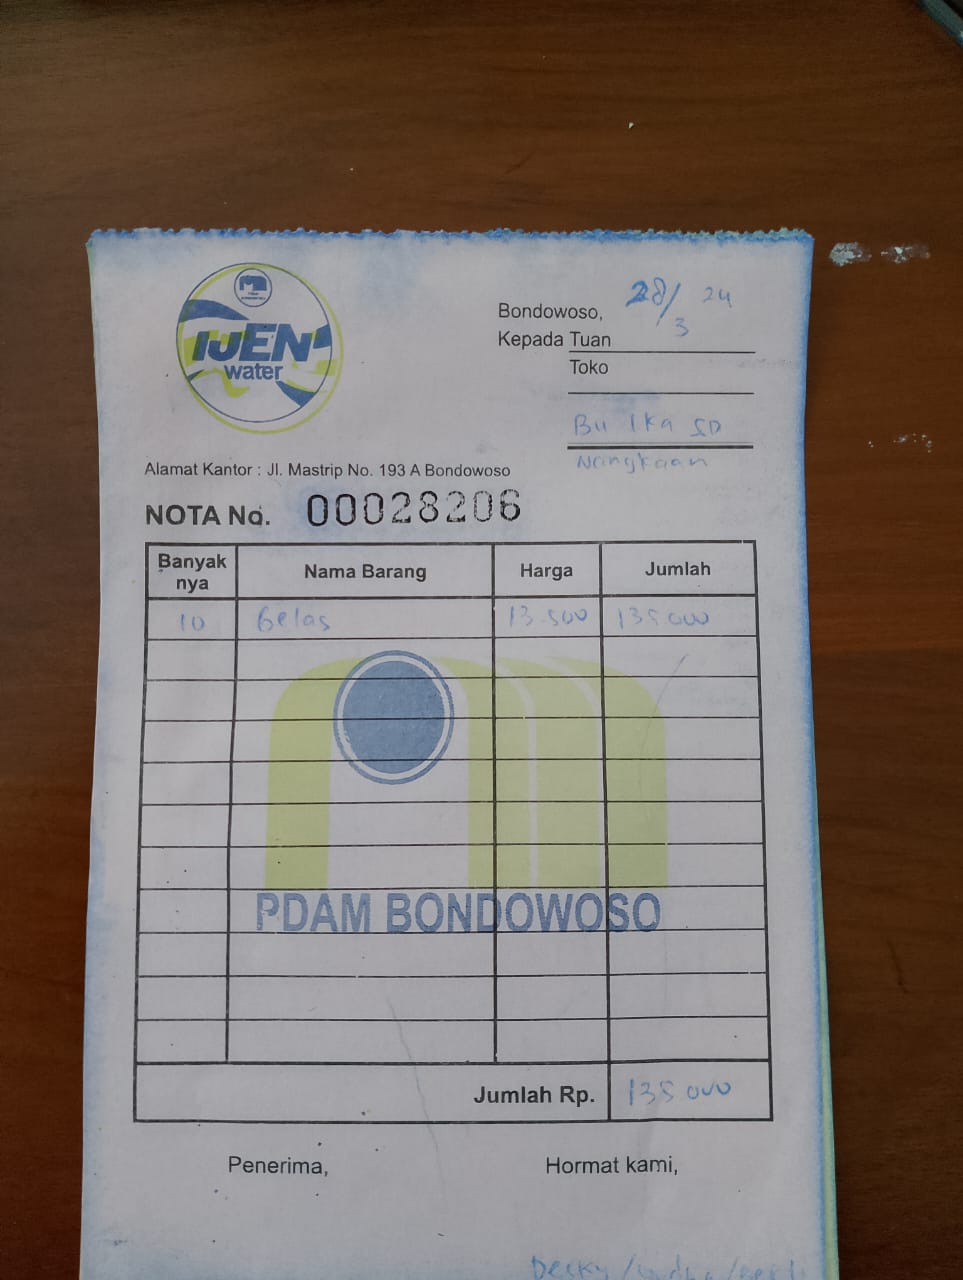 IJEN
water
Bondowoso, 28/3 24
Kepada Tuan
Toko
Bu Ika SD
Nangkaan
Alamat Kantor : Jl. Mastrip No. 193 A Bondowoso
NOTA No. 00028206
Banyak nya Nama Barang Harga Jumlah
10 Gelas 13.500 135.000
PDAM BONDOWOSO
Jumlah Rp. 135.000
Penerima, Hormat kami,
Decky /